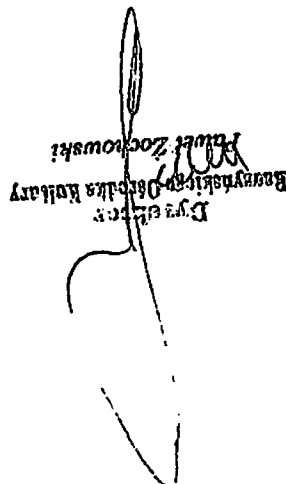 Dyrektor
Raszyńskiego Ośrodka Kultury
Paweł Żochowski